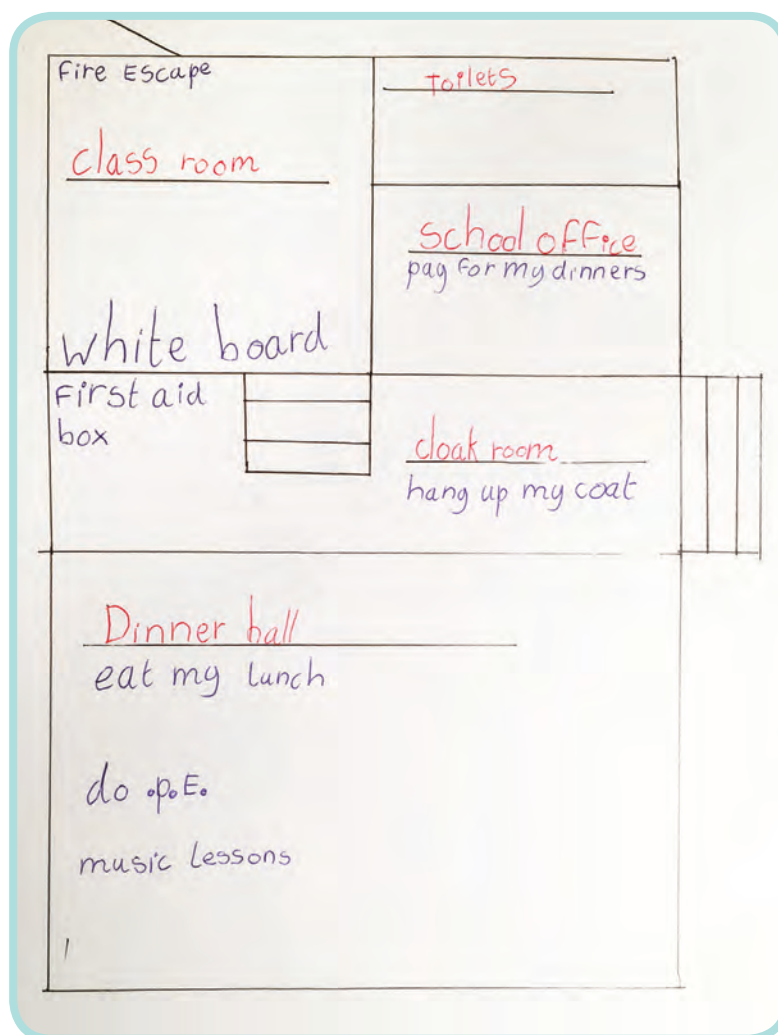 Fire Escape
Toilets
class room
School office
pay for my dinners
white board
First aid
box
cloak room
hang up my coat
Dinner hall
eat my lunch
do .p.E.
music lessons